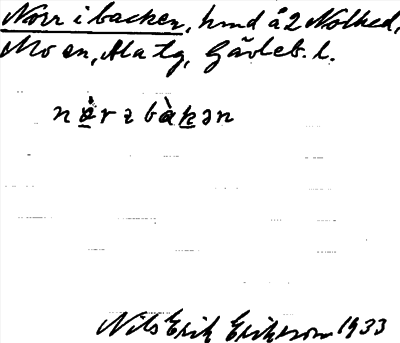 Norr i backen, hmd å 2 Nolhed,
Mo sn, Ala tg, Gävleb. l.
nὰrə bàkən
Nils Erik Eriksson 1933